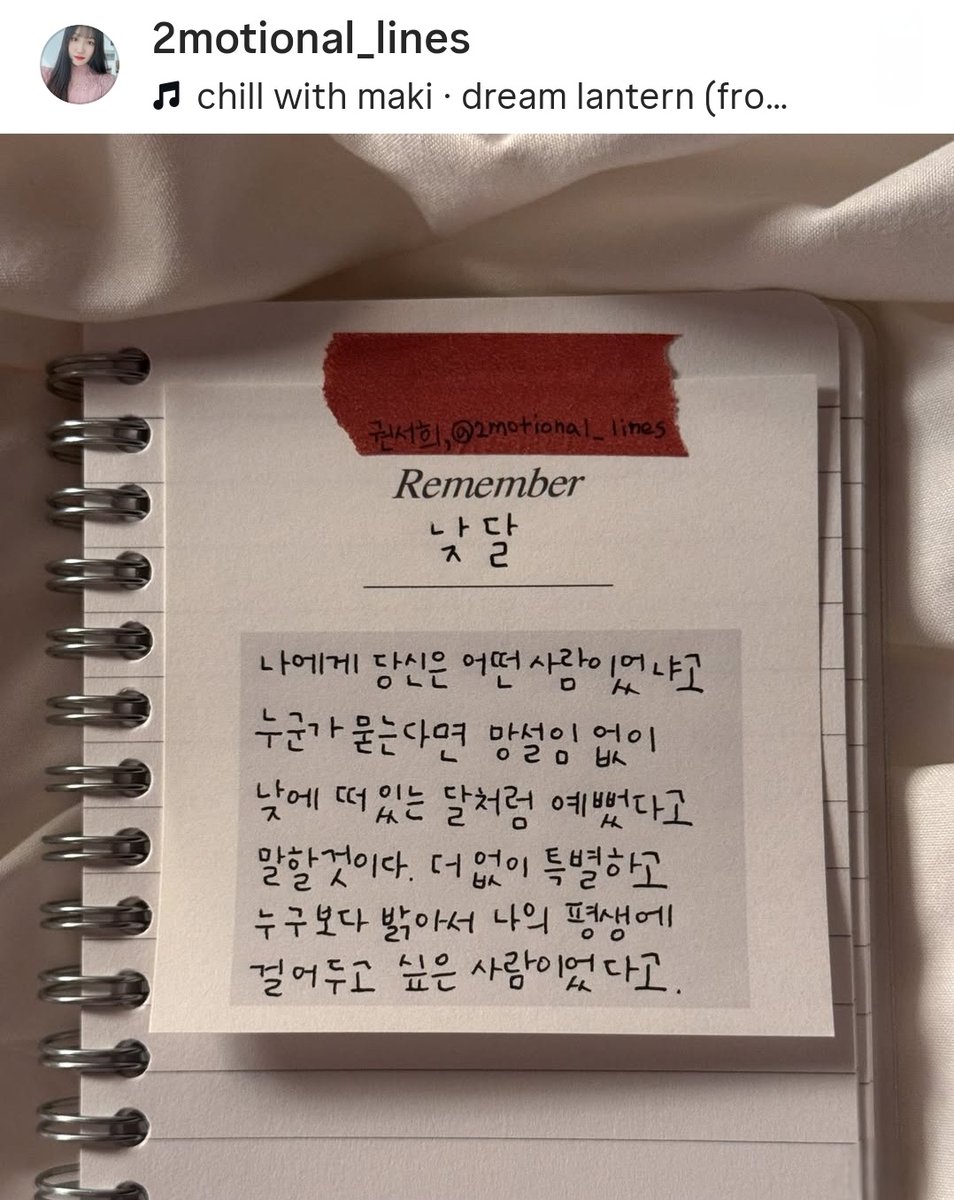 2motional_lines
chill with maki · dream lantern (fro...
권서희,@2motional_lines
Remember
낮달
나에게 당신은 어떤 사람이었냐고
누군가 묻는다면 망설임 없이
낮에 떠 있는 달처럼 예뻤다고
말할것이다. 더 없이 특별하고
누구보다 밝아서 나의 평생에
걸어두고 싶은 사람이었다고.